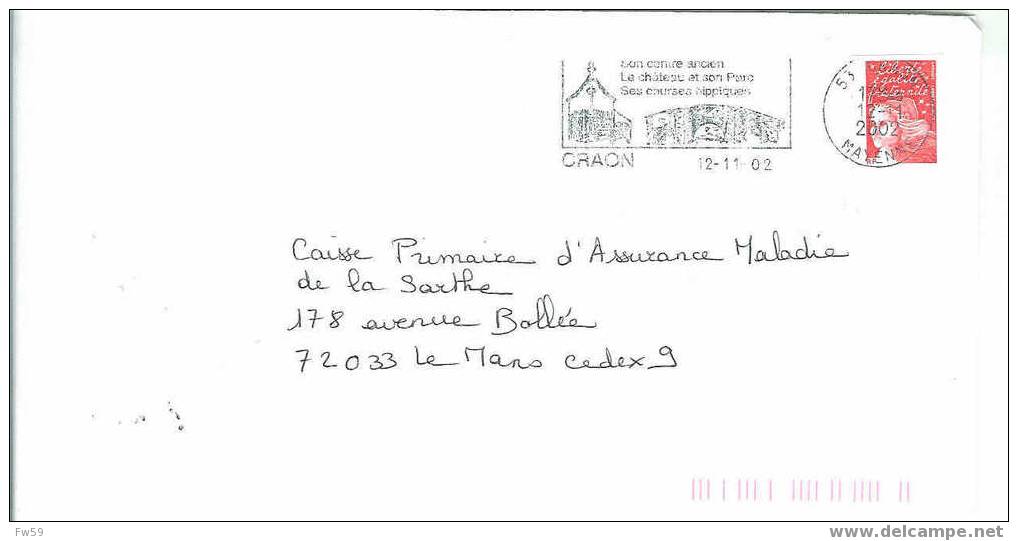 Son centre ancien
Le château et son Parc
Ses courses hippiques
CRAON
12-11-02
53
12-11
2002
MAYENNE
Liberté
égalité
fraternité
Caisse Primaire d'Assurance Maladie
de la Sarthe
178 avenue Bollée
72033 Le Mans cedex 9
Fw59
www.delcampe.net